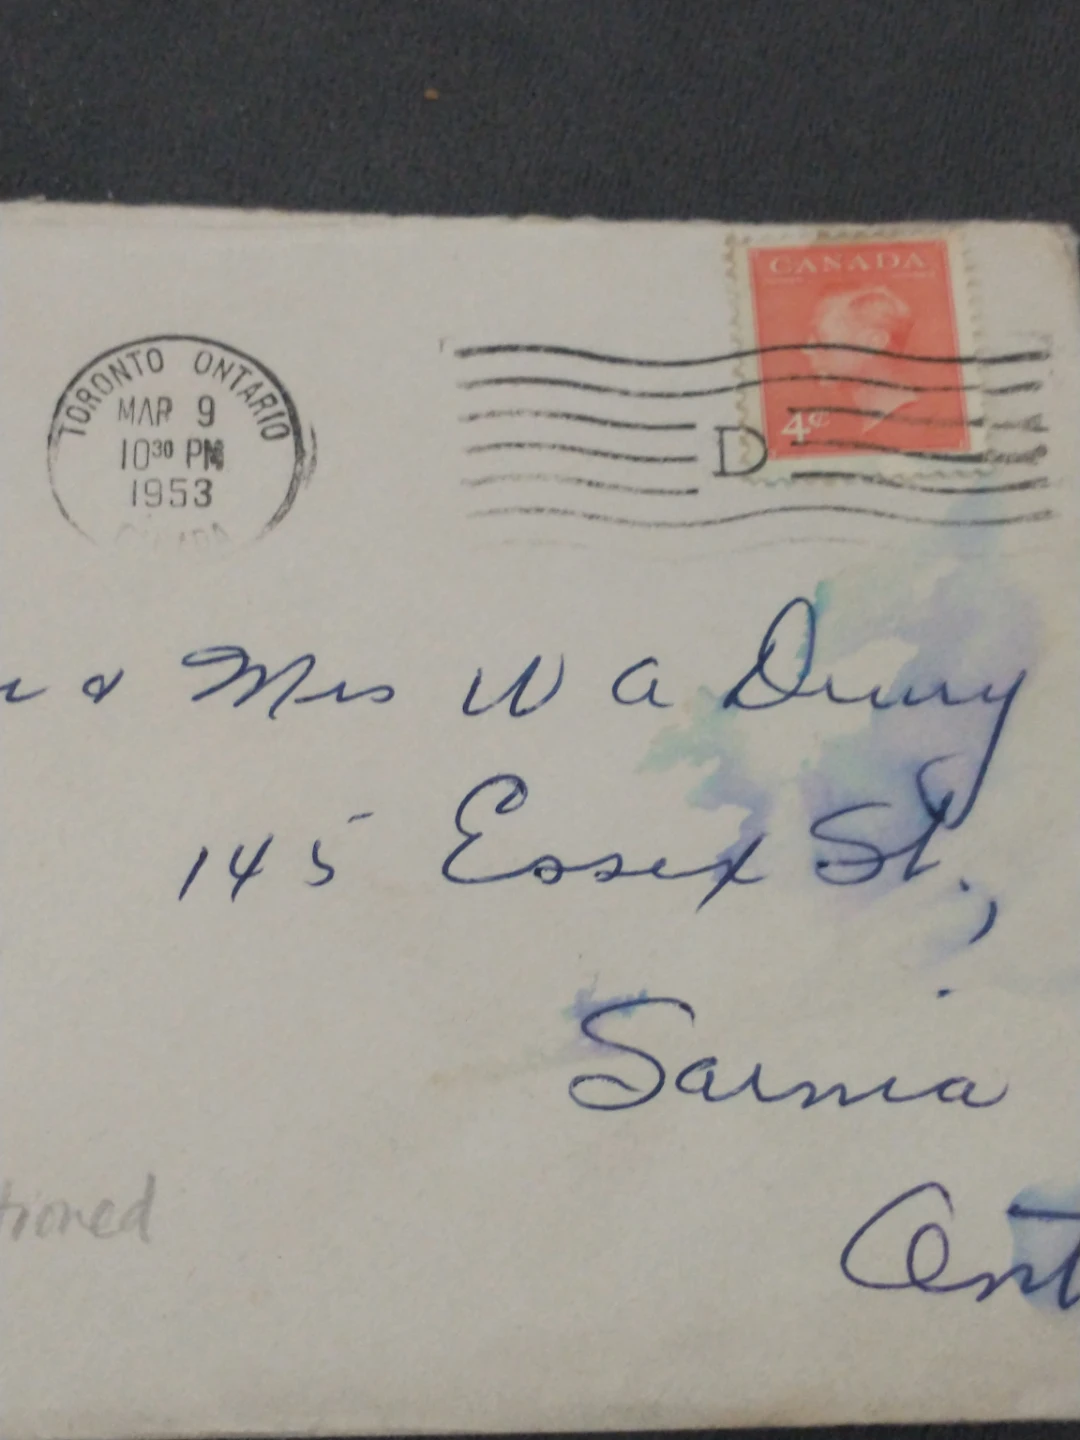 CANADA
4¢
TORONTO ONTARIO
MAR 9
10³⁰ PM
1953
CANADA
D
r & Mrs W A Drury
145 Essex St.,
Sarnia
Ont
tioned